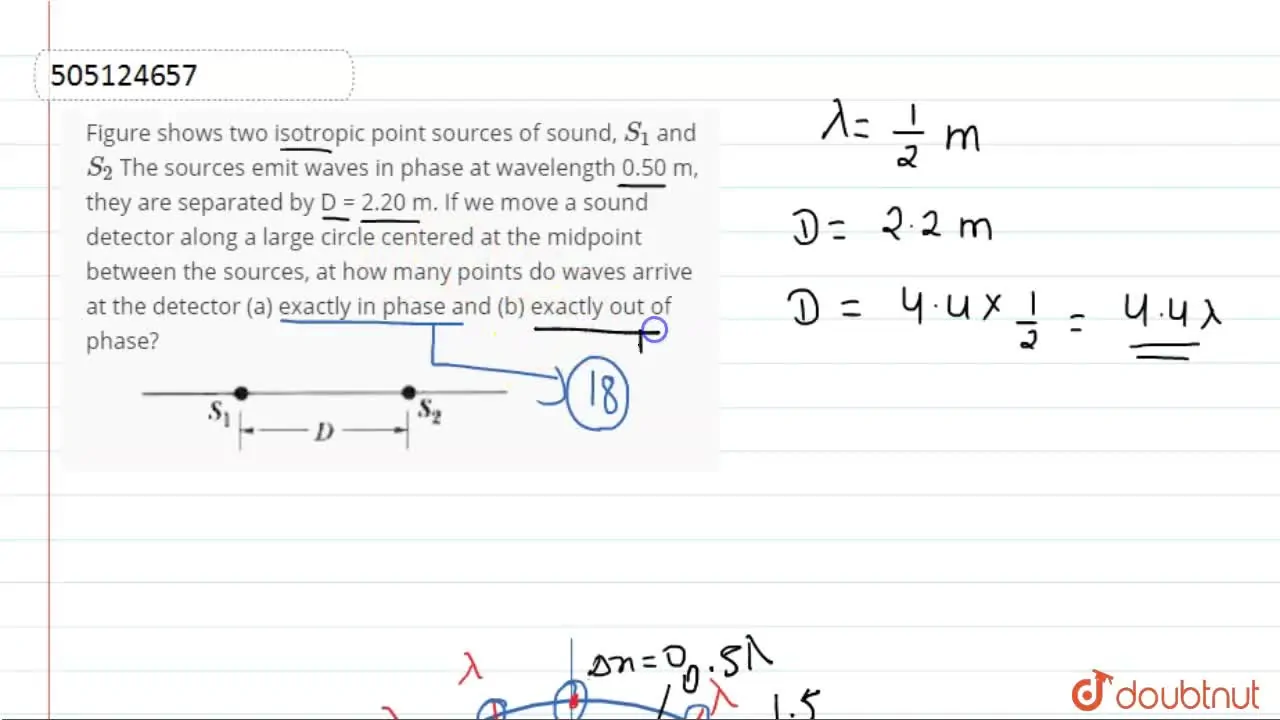 505124657
Figure shows two isotropic point sources of sound, S₁ and
S₂ The sources emit waves in phase at wavelength 0.50 m,
they are separated by D = 2.20 m. If we move a sound
detector along a large circle centered at the midpoint
between the sources, at how many points do waves arrive
at the detector (a) exactly in phase and (b) exactly out of
phase?
S₁
S₂
D
18
λ= 1/2 m
D= 2.2 m
D = 4.4 x 1/2 = 4.4 λ
λ
Δn=0
0.5λ
λ
1.5
doubtnut